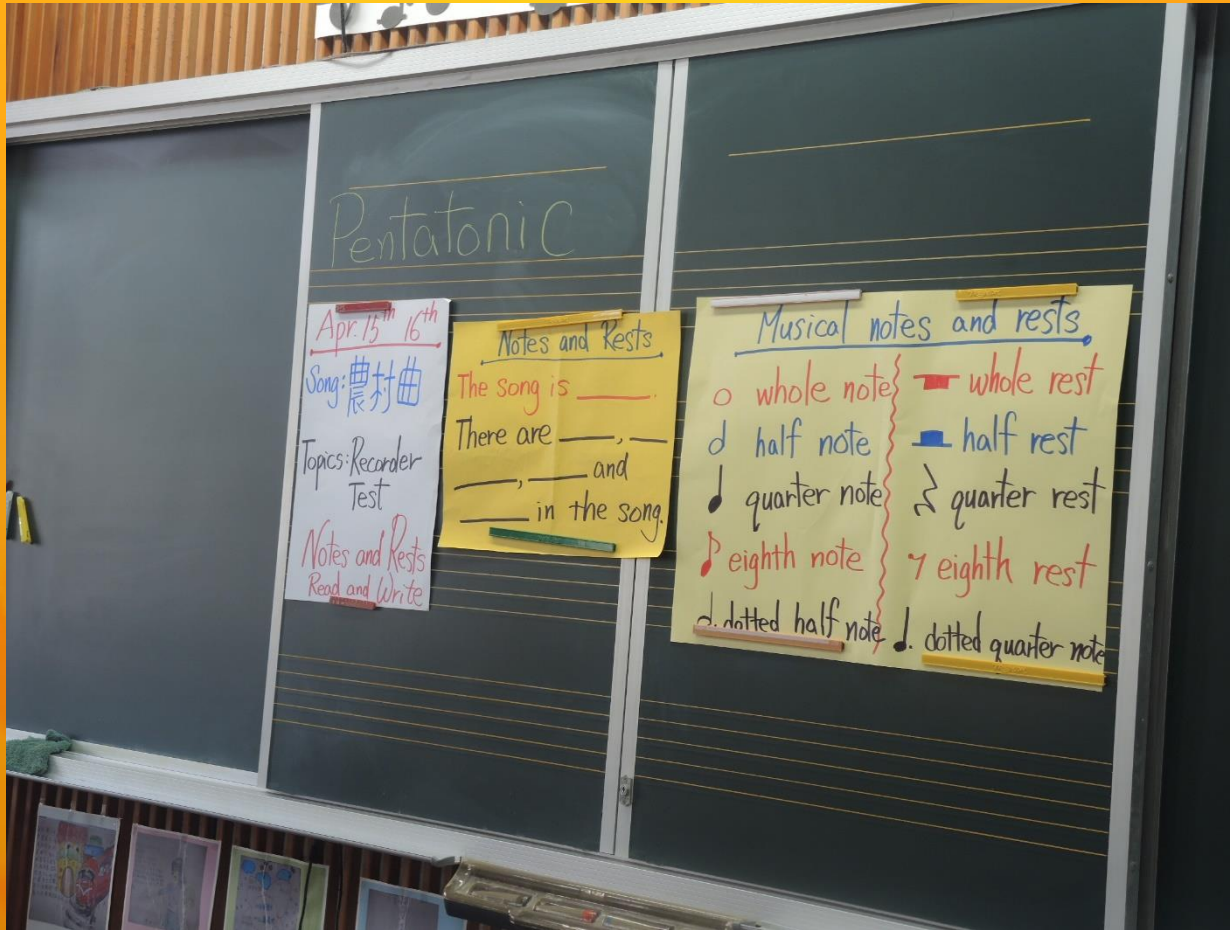 Pentatonic
Apr. 15th 16th
Song: 農村曲
Topics: Recorder
Test
Notes and Rests
Read and Write
Notes and Rests
The song is ______.
There are ____, ___
____, ____ and
____ in the song.
Musical notes and rests
whole note
half note
quarter note
eighth note
dotted half note
whole rest
half rest
quarter rest
eighth rest
dotted quarter note